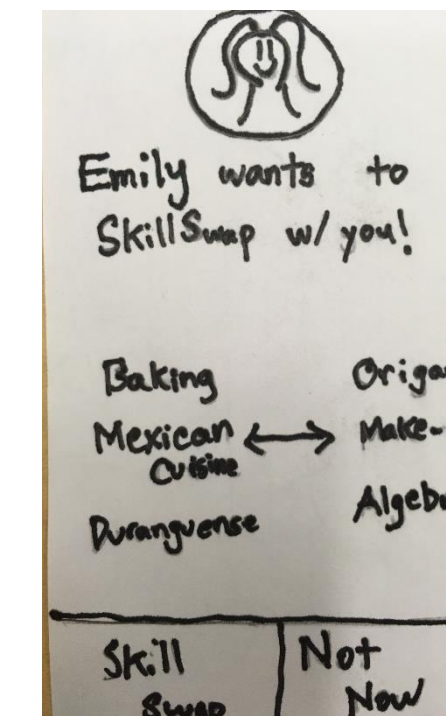 Emily wants to
SkillSwap w/ you!
Baking
Mexican
Cuisine
Duranguense
Make-
Skill
Swap
Not
Now